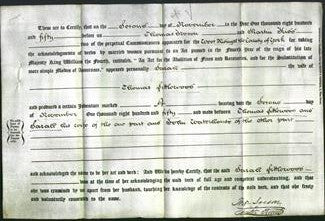 These are to Certify, that on the Second day of November in the Year One thousand eight hundred
and fifty before us Thomas and Martin
two of the perpetual Commissioners appointed for the West Riding of the County of York for
taking the acknowledgments of deeds by married women pursuant to an Act passed in the Fourth Year of the reign of his late
Majesty King William the Fourth, intituled "An Act for the Abolition of Fines and Recoveries, and for the Substitution
of more simple Modes of Assurance," appeared personally Sarah the Wife of
Thomas Littlewood
and produced a certain Indenture marked A bearing date the Second day
of November One thousand eight hundred and fifty and made between Thomas Littlewood and
Sarah his wife of the one part and of the other part
and acknowledged the same to be her act and deed: And We do hereby Certify, that the said Sarah Littlewood
was at the time of her acknowledging the said deed of full age and competent understanding, and that
she was examined by us apart from her husband, touching her knowledge of the contents of the said deed, and that she freely
and voluntarily consented to the same.